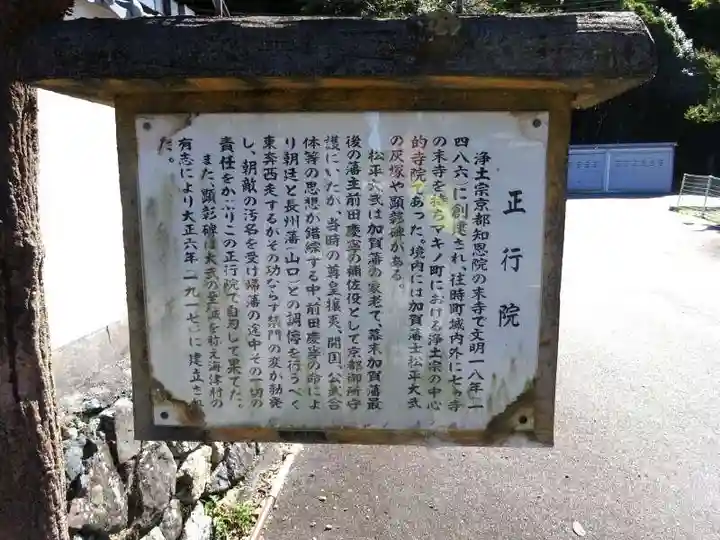 正行院
浄土宗京都知恩院の末寺で文明一八年(一
四八六)に創建され、往時町域内外に七ヶ寺
の末寺を持ちマキノ町における浄土宗の中心
的寺院であった。境内には加賀藩士松平大弐
の灰塚や顕彰碑がある。
松平大弐は加賀藩の家老で、幕末加賀藩最
後の藩主前田慶寧の補佐役として京都御所守
護にいたが、当時の尊皇攘夷、開国、公武合
体等の思想が錯綜する中、前田慶寧の命によ
り朝廷と長州藩(山口)との調停を行うべく
東奔西走するがその功ならず禁門の変が勃発
し、朝敵の汚名を受け帰藩の途中その一切の
責任をかぶりこの正行院で自刃して果てた。
また、顕彰碑は大弐の至誠を称え海津村の
有志により大正六年(一九一七)に建立され
た。